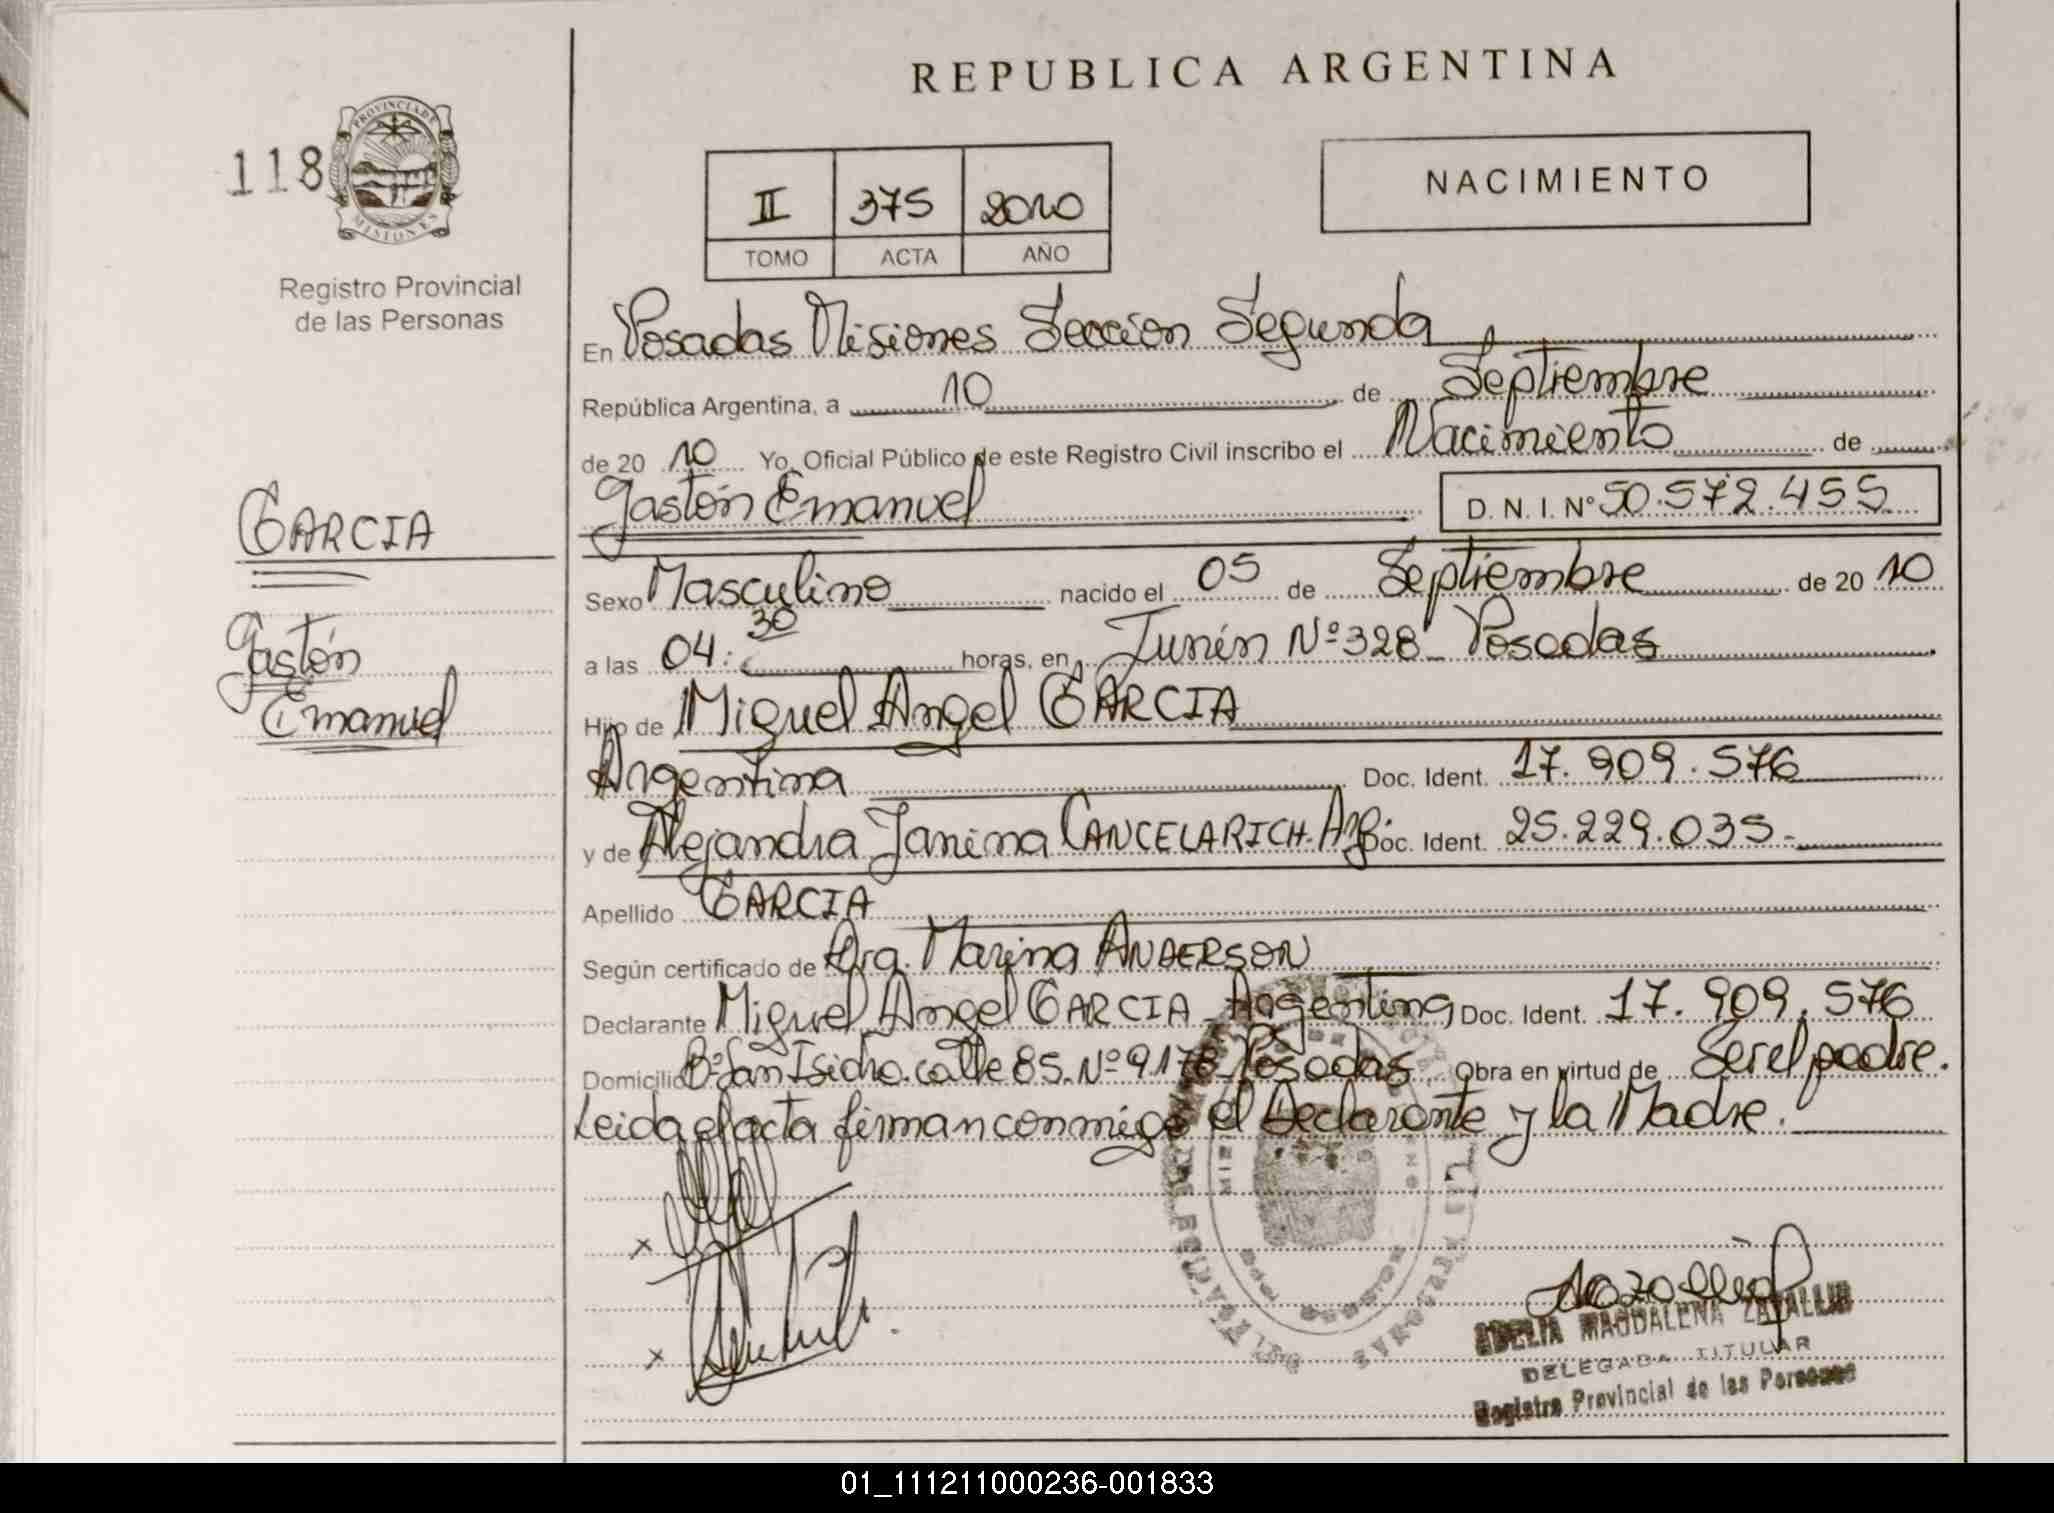 REPUBLICA ARGENTINA
118
PROVINCIA DE
MISIONES
Registro Provincial
de las Personas
II 375 2010
TOMO ACTA AÑO
NACIMIENTO
En Posadas Misiones Sección Segunda
República Argentina, a 10 de Septiembre
de 20 10 Yo, Oficial Público de este Registro Civil inscribo el Nacimiento de
Gastón Emanuel D. N. I. Nº 50.572.455
GARCIA
Gastón
Emanuel
Sexo Masculino nacido el 05 de Septiembre de 20 10
a las 04:30 horas, en Junín Nº 328 Posadas
Hijo de Miguel Angel GARCIA
Argentina Doc. Ident. 17.909.576
y de Alejandra Janina CANCELARICH. Arg. Doc. Ident. 25.229.035.-
Apellido GARCIA
Según certificado de Dra. Marina ANDERSON
Declarante Miguel Angel GARCIA Argentina Doc. Ident. 17.909.576
Domicilio Bº San Isidro. calle 85. Nº 9178 Posadas Obra en virtud de Ser el padre.
Leida el acta firman conmigo el Declarante y la Madre.
x
x
MAGDALENA
DELEGADA TITULAR
Registro Provincial de las Personas
01_111211000236-001833